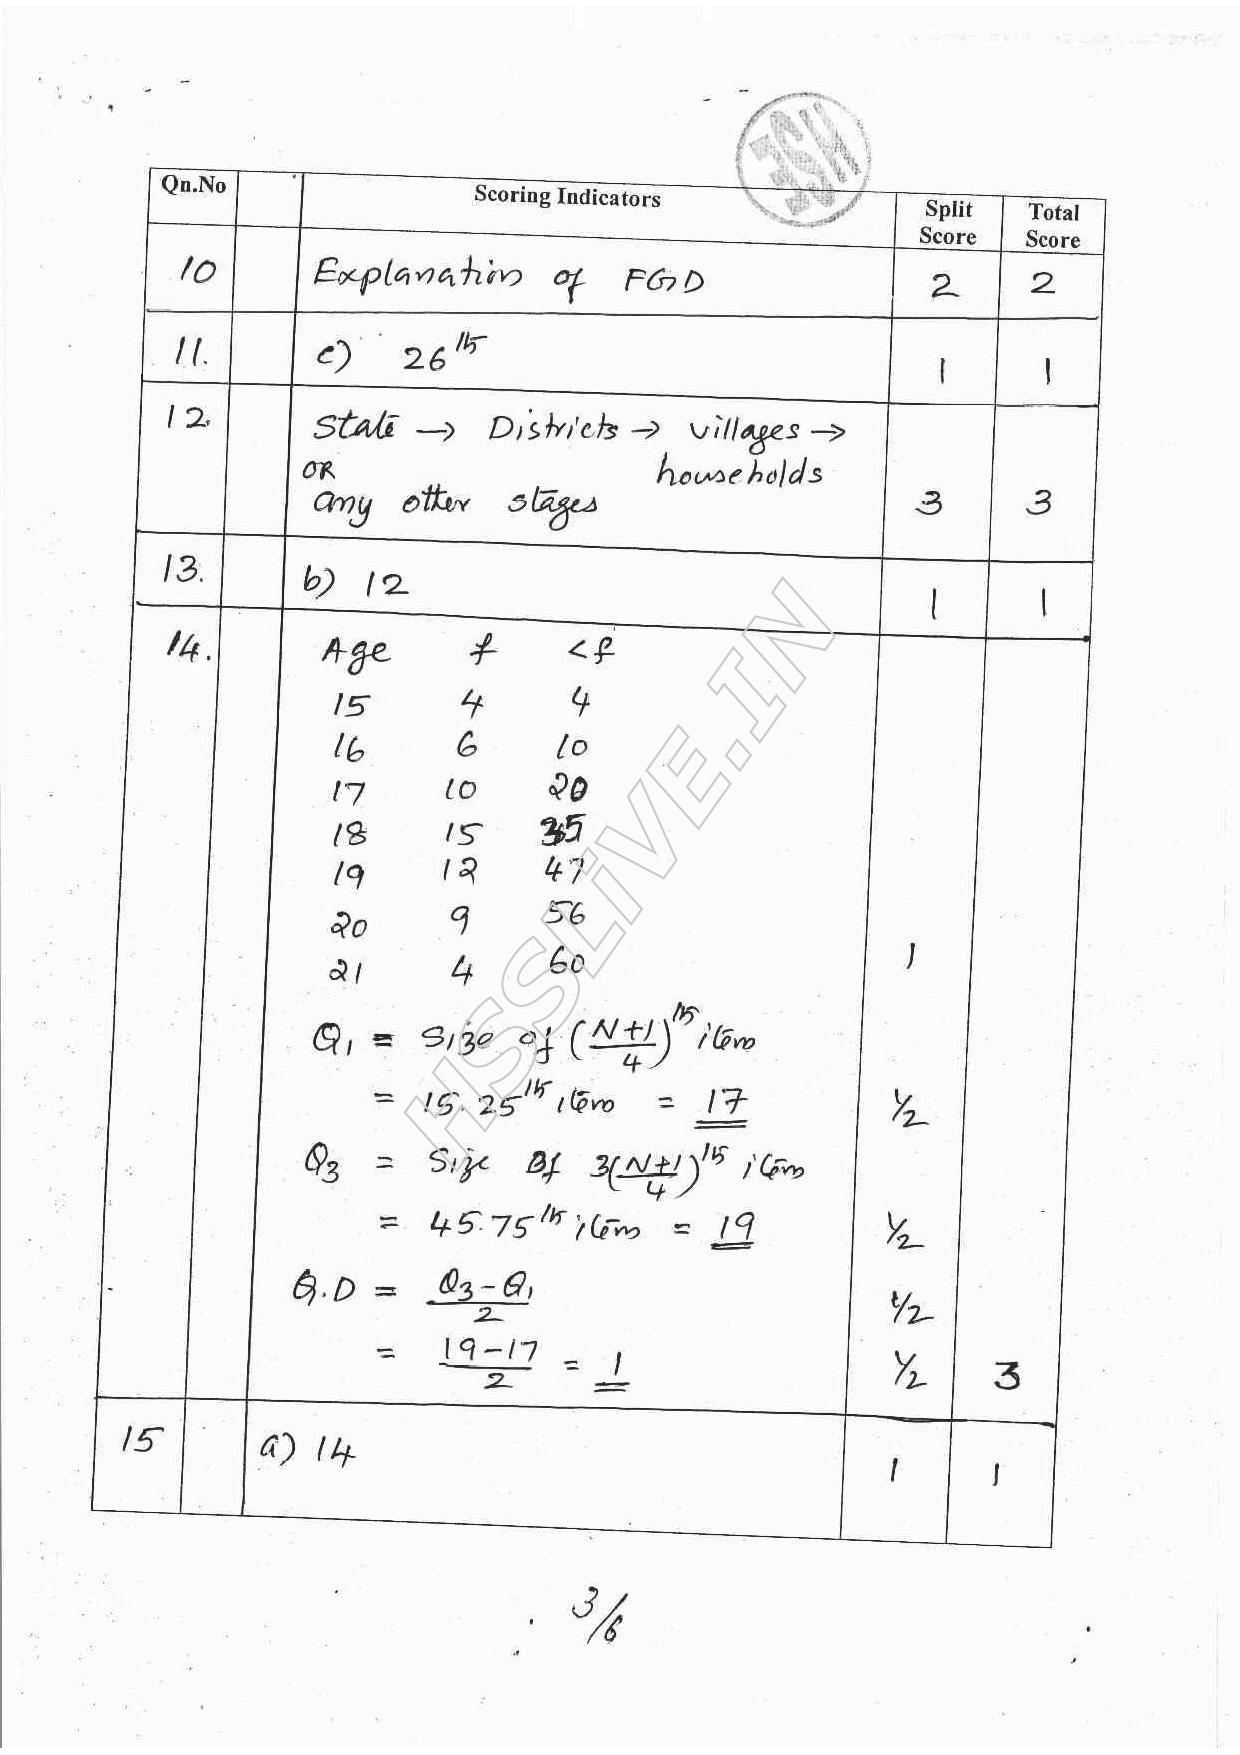 HSE
Qn.No Scoring Indicators Split Score Total Score
10 Explanation of FGD 2 2
11. c) 26th 1 1
12. State → Districts → villages →
households
OR
any other stages 3 3
13. b) 12 1 1
14. Age f <f
15 4 4
16 6 10
17 10 20
18 15 35
19 12 47
20 9 56
21 4 60 1
Q1 = Size of (N+1/4)th item
= 15.25th item = 17 1/2
Q3 = Size of 3(N+1/4)th item
= 45.75th item = 19 1/2
Q.D = Q3-Q1/2 1/2
= 19-17/2 = 1 1/2 3
15 a) 14 1 1
3/6
HSSLiVE.IN